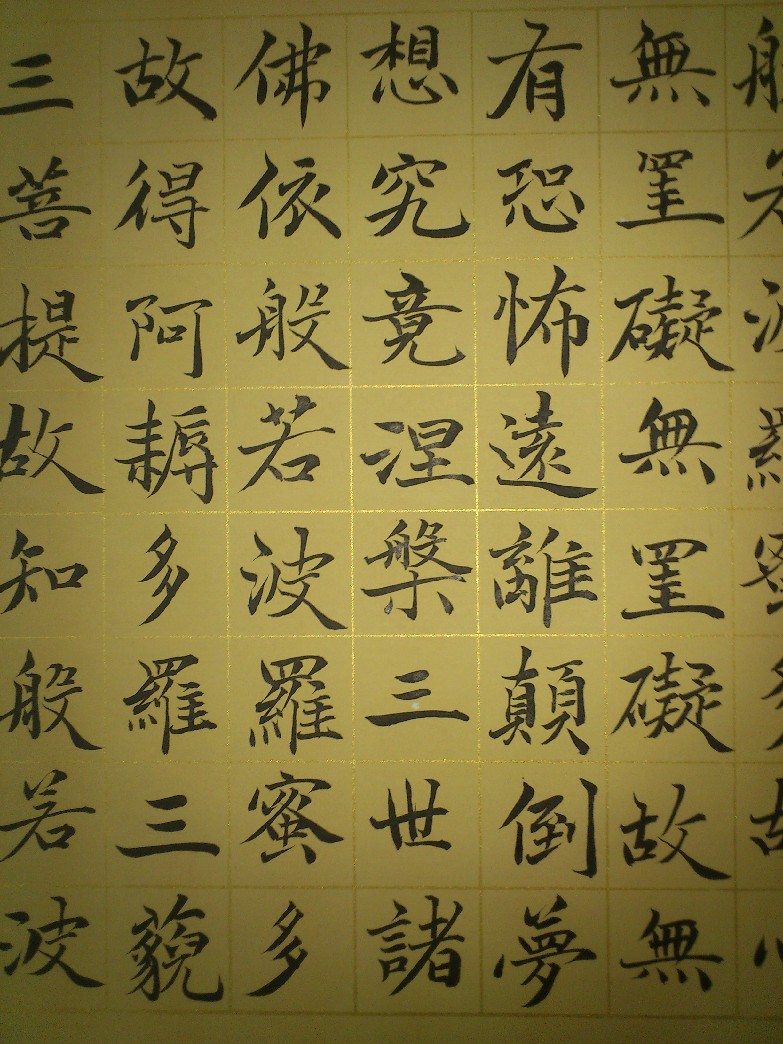 般若波羅蜜多故心
無罣礙無罣礙故無
有恐怖遠離顛倒夢
想究竟涅槃三世諸
佛依般若波羅蜜多
故得阿耨多羅三藐
三菩提故知般若波